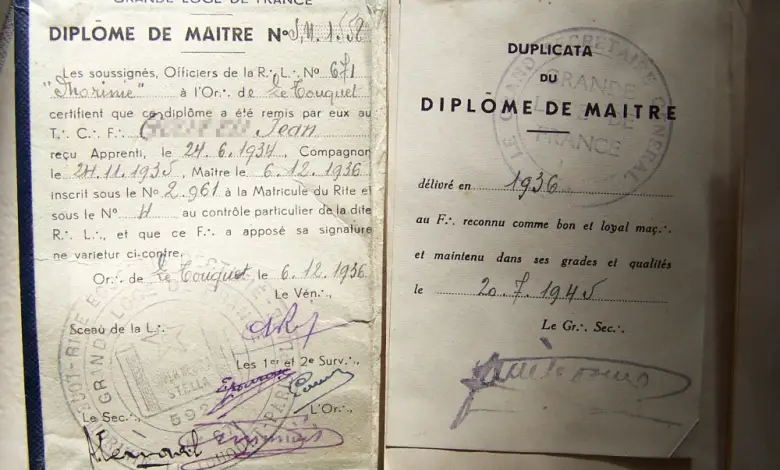 GRANDE LOGE DE FRANCE
DIPLÔME DE MAITRE No
Les soussignés, Officiers de la R∴ L∴ No 671
à l'Or∴ de Le Touquet
certifient que ce diplôme a été remis par eux au
T∴ C∴ F∴ Jean
reçu Apprenti, le 24.6.1934, Compagnon
le 24.11.1935, Maître le 6.12.1936
inscrit sous le No 2.961 à la Matricule du Rite et
sous le No au contrôle particulier de la dite
R∴ L∴, et que ce F∴ a apposé sa signature
ne varietur ci-contre.
Or∴ de Le Touquet, le 6.12.1936
Le Vén∴,
Sceau de la L∴
Les 1er et 2e Surv∴,
Le Sec∴,
L'Or∴,
STELLA
DUPLICATA
DU
DIPLÔME DE MAITRE
délivré en 1936
au F∴ reconnu comme bon et loyal maç∴
et maintenu dans ses grades et qualités
le 20.7.1945
Le Gr∴ Sec∴
LE GRAND SECRETAIRE GENERAL
GRANDE
LOGE DE
FRANCE